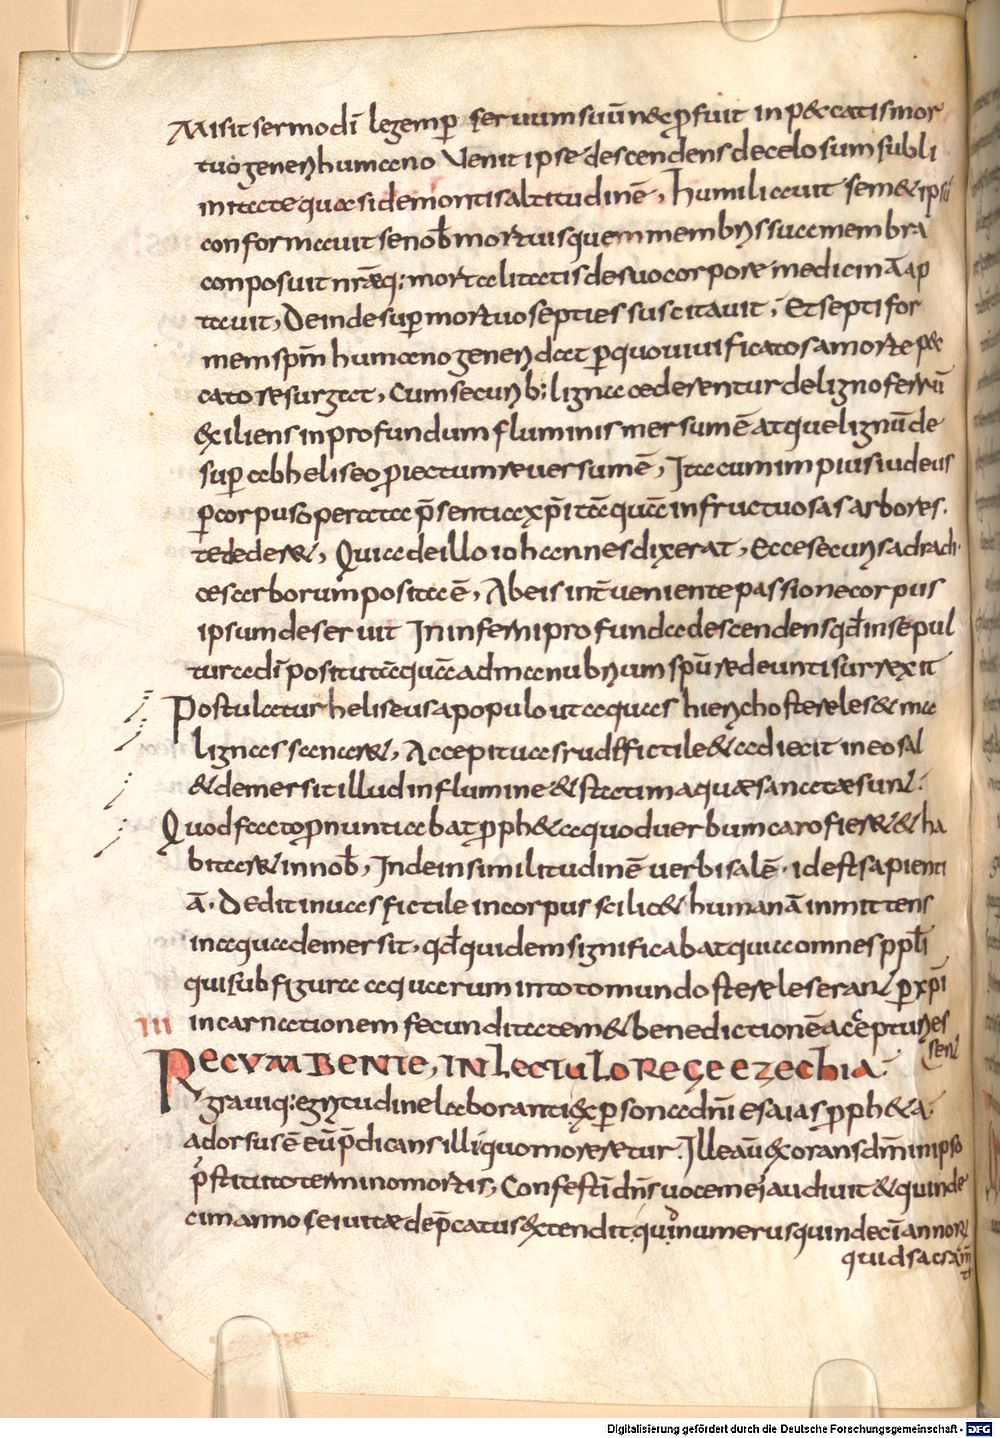 Misit sermo dī legem per̄ seruum suū nec p̄fuit in peccatis mor
tuo generi humano Venit ipse descendens de celo sum subli
mitate quasi de montis altitudinē, humiliauit semet ipsū
conformauit se nob̄ mortuis quem membris sua membra
conposuit nr̄aeq; mortalitatis de suo corpore medicinā ap
tauit, Deinde super̄ mortuo septies suscitauit, Et septifor
mem sp̄m humano generi dat p̄ quo uiuificato sa morte pec
cato resurgat, Cum securib; ligna cederentur de ligno ferrū
exiliens in profundum fluminis mersum ē atque lignū de
sup̄ ab heliseo p̄iectum reuersum ē, Ita cum impius iudeus
p̄ corpus operata p̄sentia xp̄i tāquā infructuosas arbores.
te dederet, Quia de illo iohannes dixerat, Ecce securis ad radi
ces arborum posita ē, Ab eis int̄ueniente passione corpus
ipsum deseruit In inferni profunda descendens qd̄ in sepul
tura dī posituta quā ad manubrium sp̄u redeunti surrexit
Postulatur heliseus a populo ut aquas hiericho stereles et ma
lignas sanaret, Accepit uas rude fictile et adiecit in eo sal
et demersit illud in flumine et statim aquae sanatae sunt.
Quod facto p̄nuntiabat p̄pheta quod uerbum caro fieret et ha
bitaret in nob̄, Inde in similitudinē uerbi salē. id est sapienti
ā. Dedit in uas fictile in corpus scilicet humanā inmittens
in aqua demersit, qd̄ quidem significabat quia omnes ppl̄i
qui sub figura aquarum in toto mundo sterele serant p̄ xp̄i
III incarnationem fecunditatem et benedictionē accepturi es
sent
RECUMBENTE, IN LECTULO REGE EZECHIA
grauiq; egritudine laboranti ex p̄sona dn̄i esaias p̄pheta.
adorsus ē eū p̄dicans illi quo moreretur. Ille aū exorans dn̄m in ipso
p̄stituto termino mortis, Confestī dn̄s uocem ei audiuit et quinde
cim anno sei uitae dep̄catus extendit quid numerus quindecī annor̄
quid sacram̄
ti
Digitalisierung gefördert durch die Deutsche Forschungsgemeinschaft - DFG